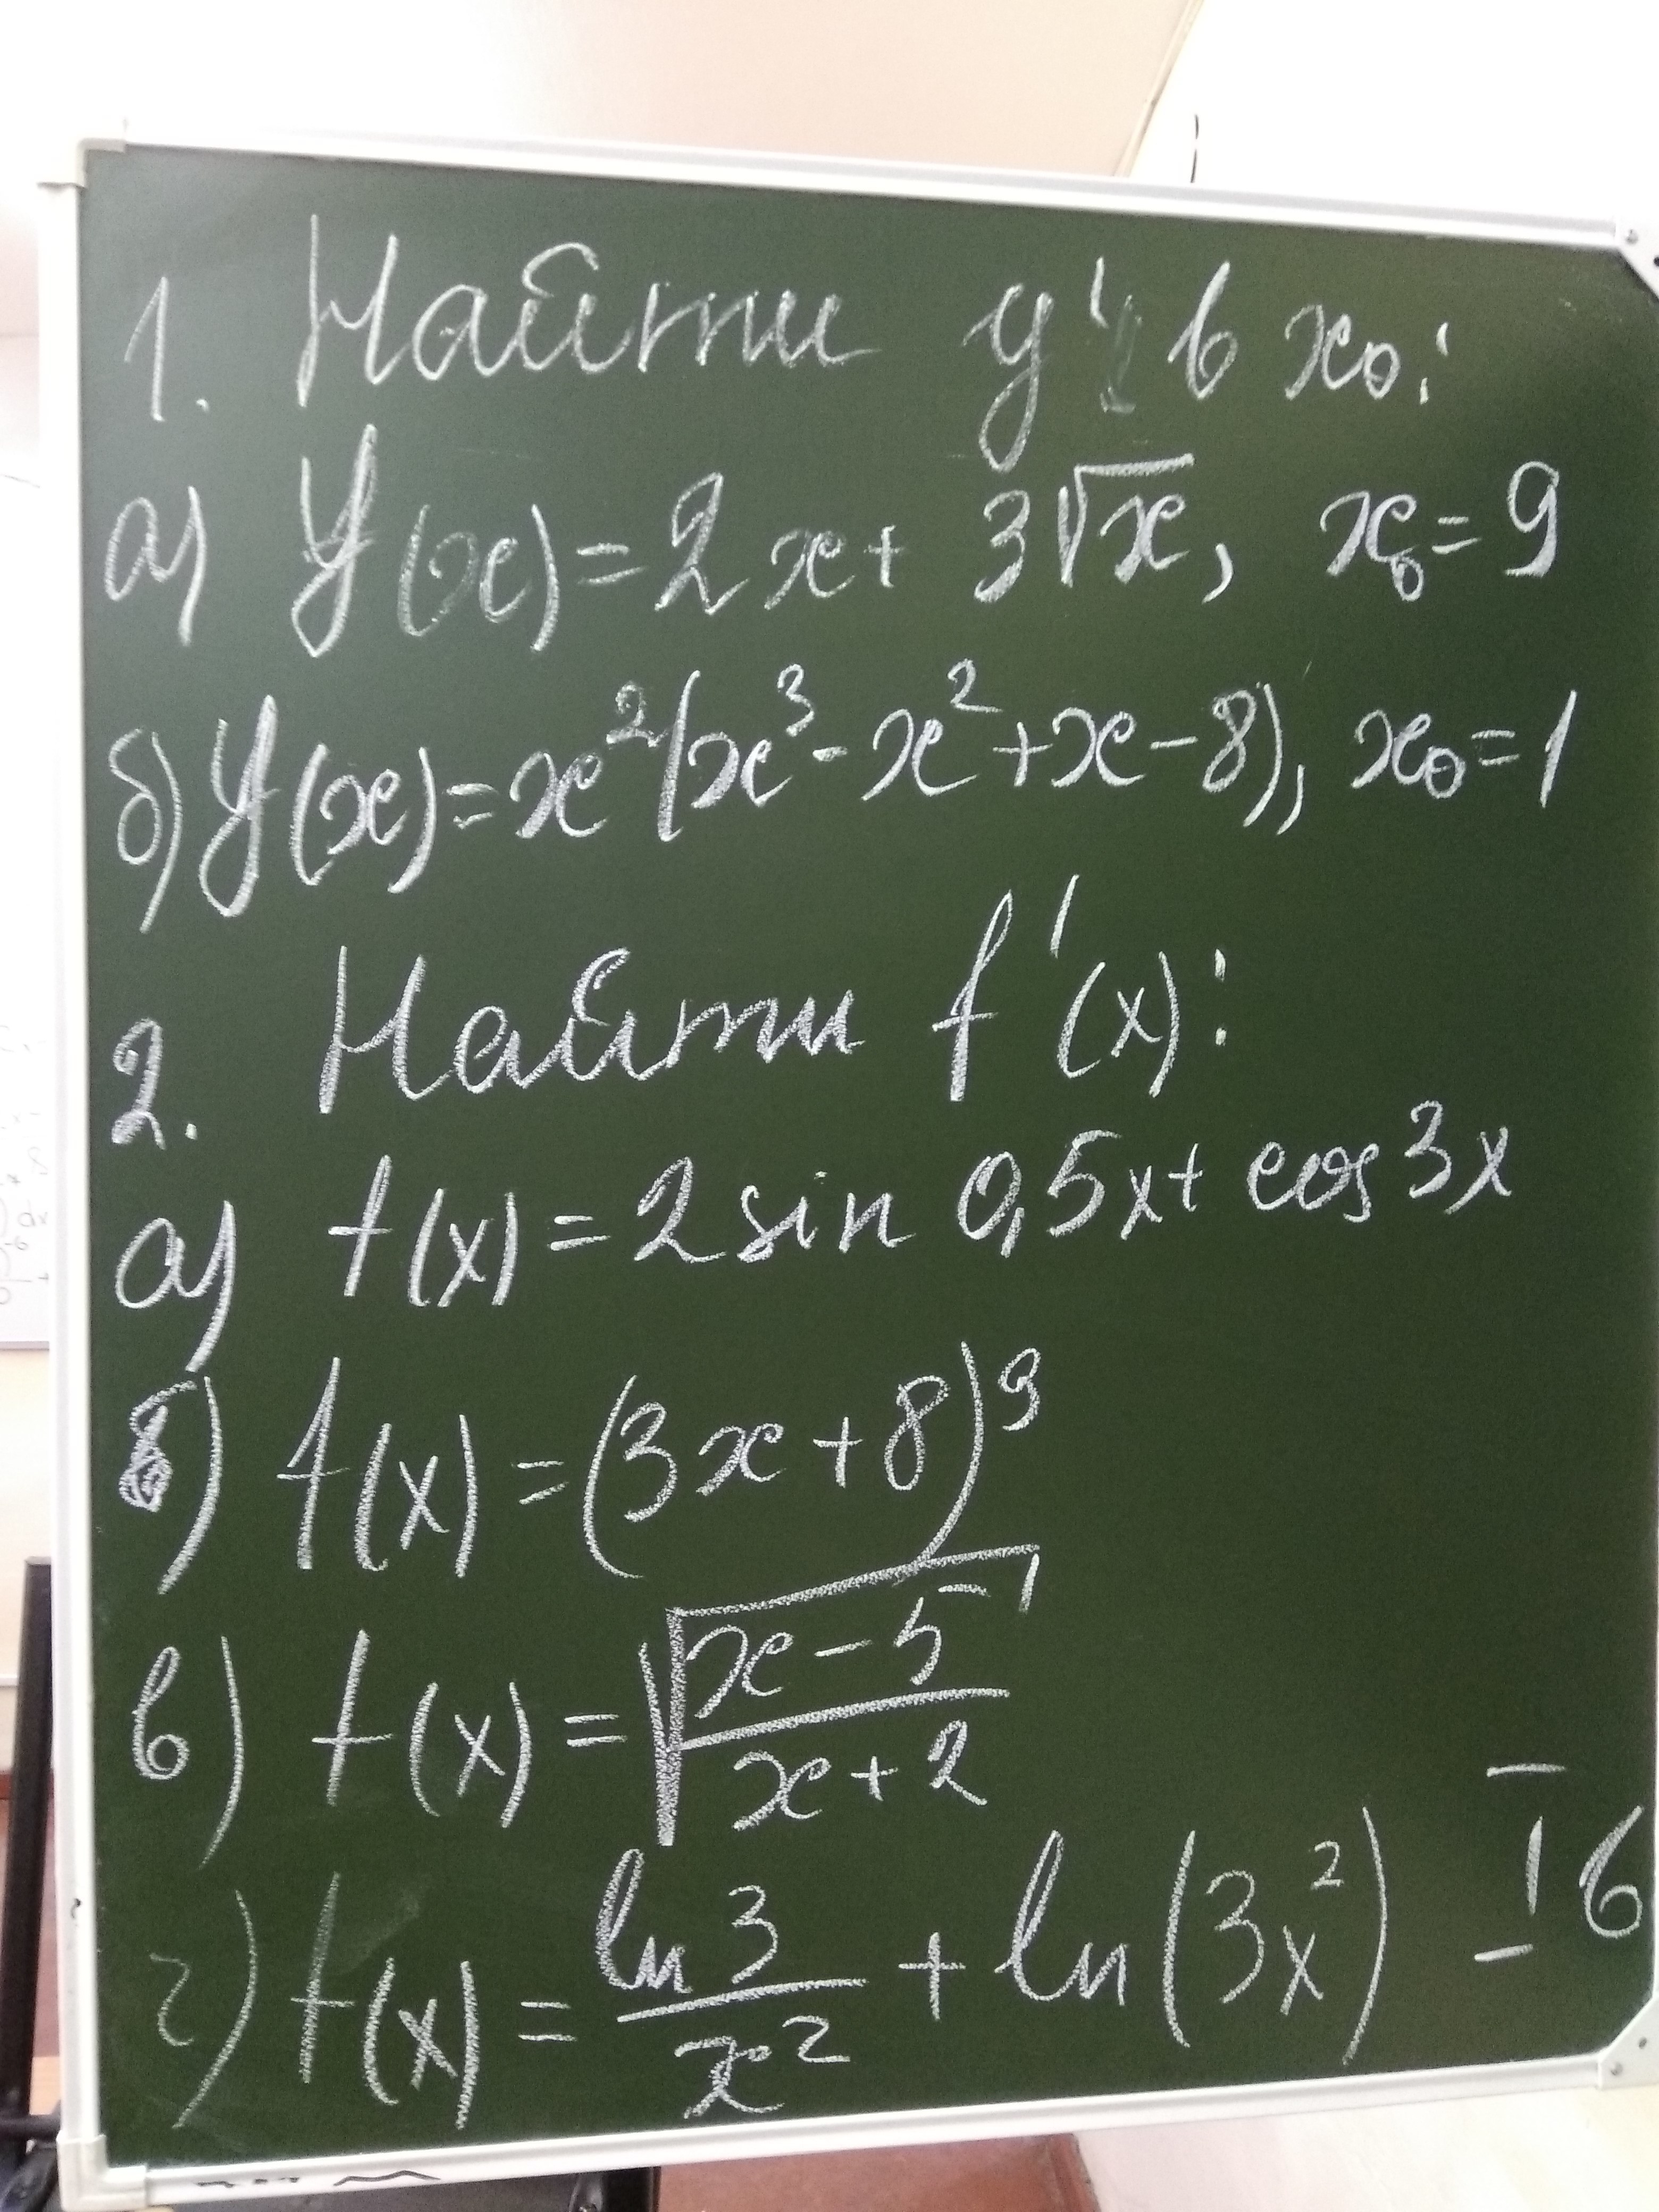 1. Найти y' в x₀:
а) y(x) = 2x + 3√x, x₀ = 9
б) y(x) = x²(x³ - x² + x - 8), x₀ = 1
2. Найти f'(x):
а) f(x) = 2 sin 0,5x + cos 3x
б) f(x) = (3x + 8)⁹
в) f(x) = √((x - 5)/(x + 2))
г) f(x) = ln 3/x² + ln(3x²)
I 6